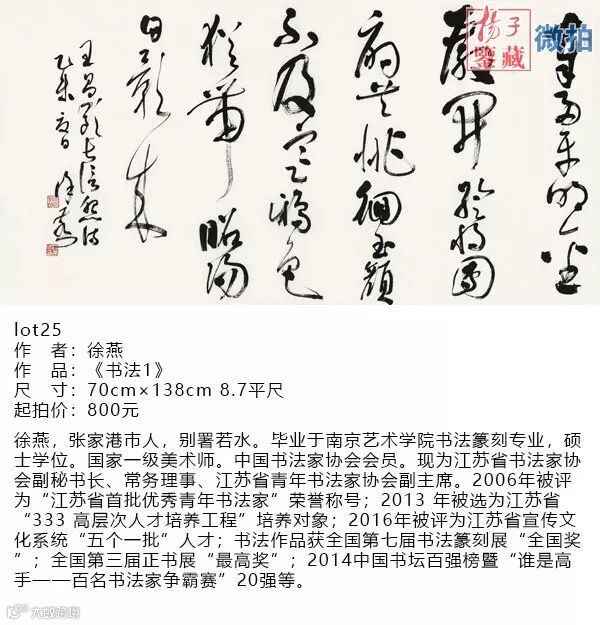 揚子
鑒藏
微拍
奉帚平明金
殿開將團
扇共徘徊玉顏
不及寒鴉色
猶帶昭陽
日影來
王昌齡長信詩
乙未夏日 徐燕
lot25
作 者：徐燕
作 品：《书法1》
尺 寸：70cm×138cm 8.7平尺
起拍价：800元
徐燕，张家港市人，别署若水。毕业于南京艺术学院书法篆刻专业，硕
士学位。国家一级美术师。中国书法家协会会员。现为江苏省书法家协
会副秘书长、常务理事、江苏省青年书法家协会副主席。2006年被评
为“江苏省首批优秀青年书法家”荣誉称号；2013 年被选为江苏省
“333 高层次人才培养工程”培养对象；2016年被评为江苏省宣传文
化系统“五个一批”人才；书法作品获全国第七届书法篆刻展“全国奖
”；全国第三届正书展“最高奖”；2014中国书坛百强榜暨“谁是高
手——百名书法家争霸赛”20强等。
大威跨境